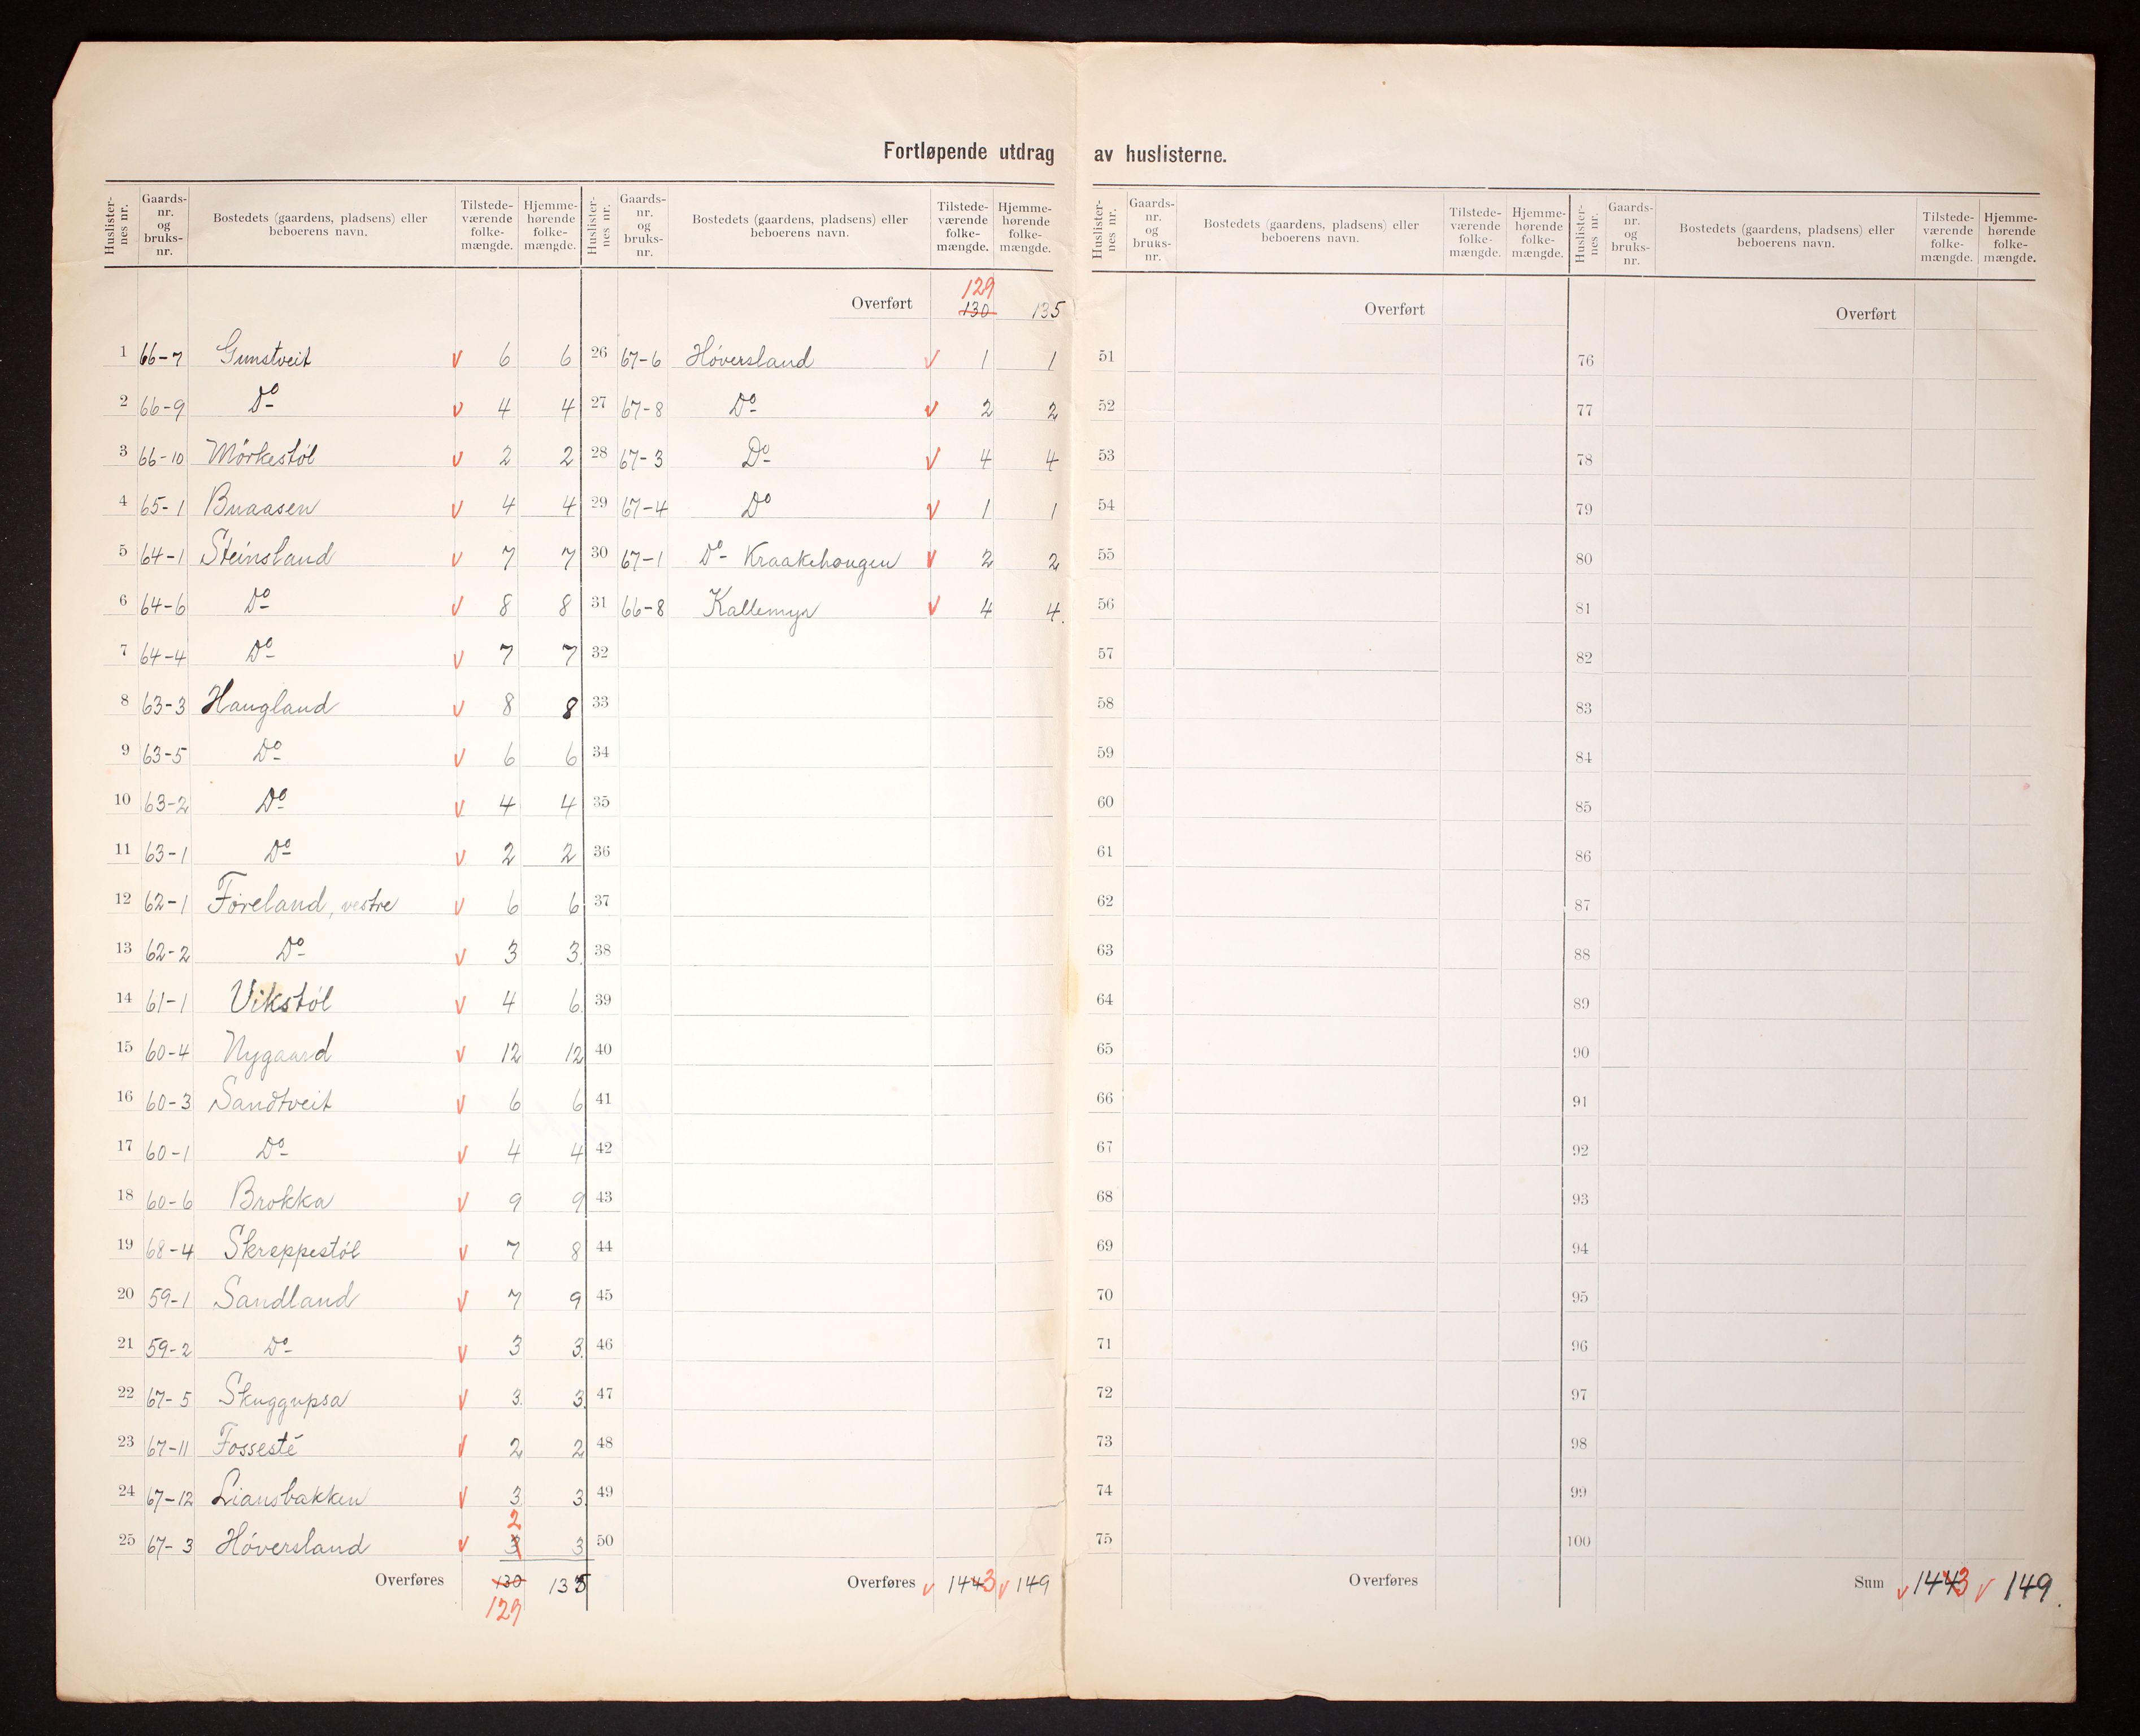 Fortløpende utdrag av huslisterne.
Huslister-nes nr. Gaards-nr. og bruks-nr. Bostedets (gaardens, pladsens) eller beboerens navn. Tilstede-værende folke-mængde. Hjemme-hørende folke-mængde.
1 66-7 Gunstveit v 6 6
2 66-9 Do v 4 4
3 66-10 Mørkestøl v 2 2
4 65-1 Buaasen v 4 4
5 64-1 Steinsland v 7 7
6 64-6 Do v 8 8
7 64-4 Do v 7 7
8 63-3 Haugland v 8 8
9 63-5 Do v 6 6
10 63-2 Do v 4 4
11 63-1 Do v 2 2
12 62-1 Føreland, vestre v 6 6
13 62-2 Do v 3 3.
14 61-1 Vikstøl v 4 6
15 60-4 Nygaard v 12 12
16 60-3 Sandtveit v 6 6
17 60-1 Do v 4 4
18 60-6 Brokka v 9 9
19 68-4 Skreppestøl v 7 8
20 59-1 Sandland v 7 9
21 59-2 Do v 3 3.
22 67-5 Skuggupsa v 3. 3.
23 67-11 Fossesté v 2 2
24 67-12 Liansbakken v 3 3.
25 67-3 Høversland v 3 2 3
Overføres 130 129 135
Huslister-nes nr. Gaards-nr. og bruks-nr. Bostedets (gaardens, pladsens) eller beboerens navn. Tilstede-værende folke-mængde. Hjemme-hørende folke-mængde.
Overført 129 130 135
26 67-6 Høversland v 1 1
27 67-8 Do v 2 2
28 67-3 Do v 4 4
29 67-4 Do v 1 1
30 67-1 Do - Kraakehougen v 2 2
31 66-8 Kallemyr v 4 4.
32
33
34
35
36
37
38
39
40
41
42
43
44
45
46
47
48
49
50
Overføres v 1443 v 149
Huslister-nes nr. Gaards-nr. og bruks-nr. Bostedets (gaardens, pladsens) eller beboerens navn. Tilstede-værende folke-mængde. Hjemme-hørende folke-mængde.
Overført
51
52
53
54
55
56
57
58
59
60
61
62
63
64
65
66
67
68
69
70
71
72
73
74
75
Overføres
Huslister-nes nr. Gaards-nr. og bruks-nr. Bostedets (gaardens, pladsens) eller beboerens navn. Tilstede-værende folke-mængde. Hjemme-hørende folke-mængde.
Overført
76
77
78
79
80
81
82
83
84
85
86
87
88
89
90
91
92
93
94
95
96
97
98
99
100
Sum v 1443 v 149.